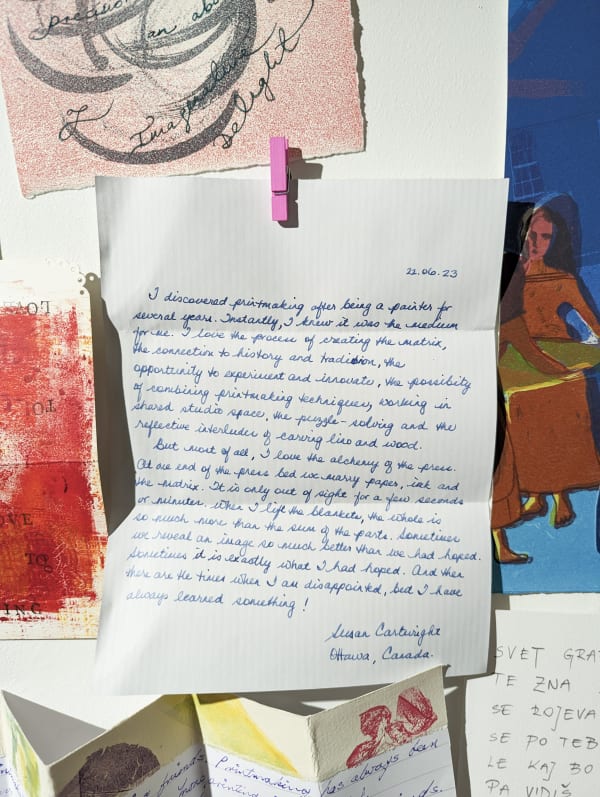 precious
an
Imagination
Delight
21.06.23
I discovered printmaking after being a painter for
several years. Instantly, I knew it was the medium
for me. I love the process of creating the matrix,
the connection to history and tradition, the
opportunity to experiment and innovate, the possibility
of combining printmaking techniques, working in
shared studio space, the puzzle-solving and the
reflective interludes of carving lino and wood.
But most of all, I love the alchemy of the press.
At one end of the press bed we marry paper, ink and
the matrix. It is only out of sight for a few seconds
or minutes. When I lift the blankets, the whole is
so much more than the sum of the parts. Sometimes
we reveal an image so much better than we had hoped.
Sometimes it is exactly what I had hoped. And then
there are the times when I am disappointed, but I have
always learned something!
Susan Cartwright
Ottawa, Canada.
LOVE
TO
OVE
TO
ING
SVET
TE ZNA
SE ROJEVA
SE PO TEB
LE KAJ BO
PA VIDIŠ
friends,
more
Printmaking has always been